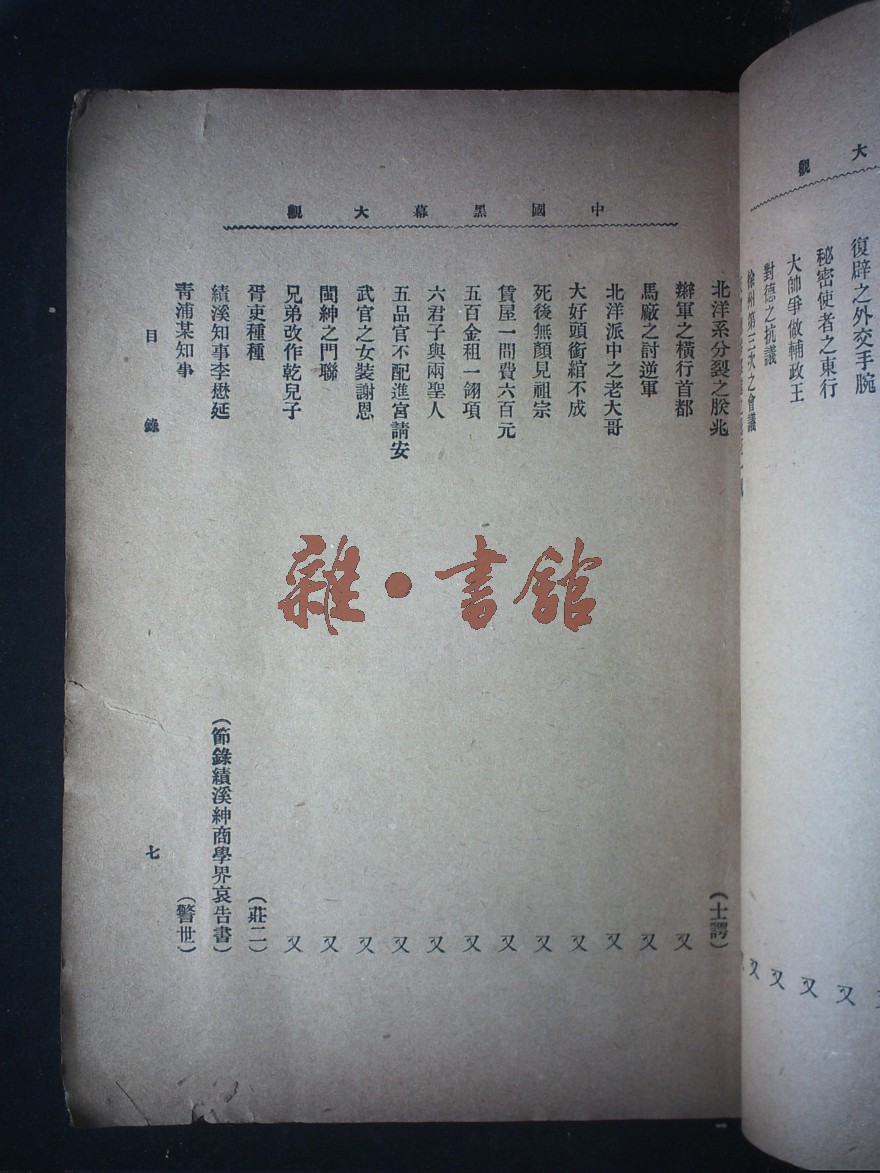 大觀
復辟之外交手腕
秘密使者之東行 又
大帥爭做輔政王 又
對德之抗議 又
徐州第三次之會議 又
中國黑幕大觀
北洋系分裂之朕兆 (士諤)
辮軍之橫行首都 又
馬廠之討逆軍 又
北洋派中之老大哥 又
大好頭銜綰不成 又
死後無顏見祖宗 又
賃屋一間費六百元 又
五百金租一翎項 又
六君子與兩聖人 又
五品官不配進宮請安 又
武官之女裝謝恩 又
閩紳之門聯 又
兄弟改作乾兒子 又
胥吏種種 (莊二)
績溪知事李懋延 (節錄績溪紳商學界哀告書)
靑浦某知事 (警世)
目錄 七
雜·書館